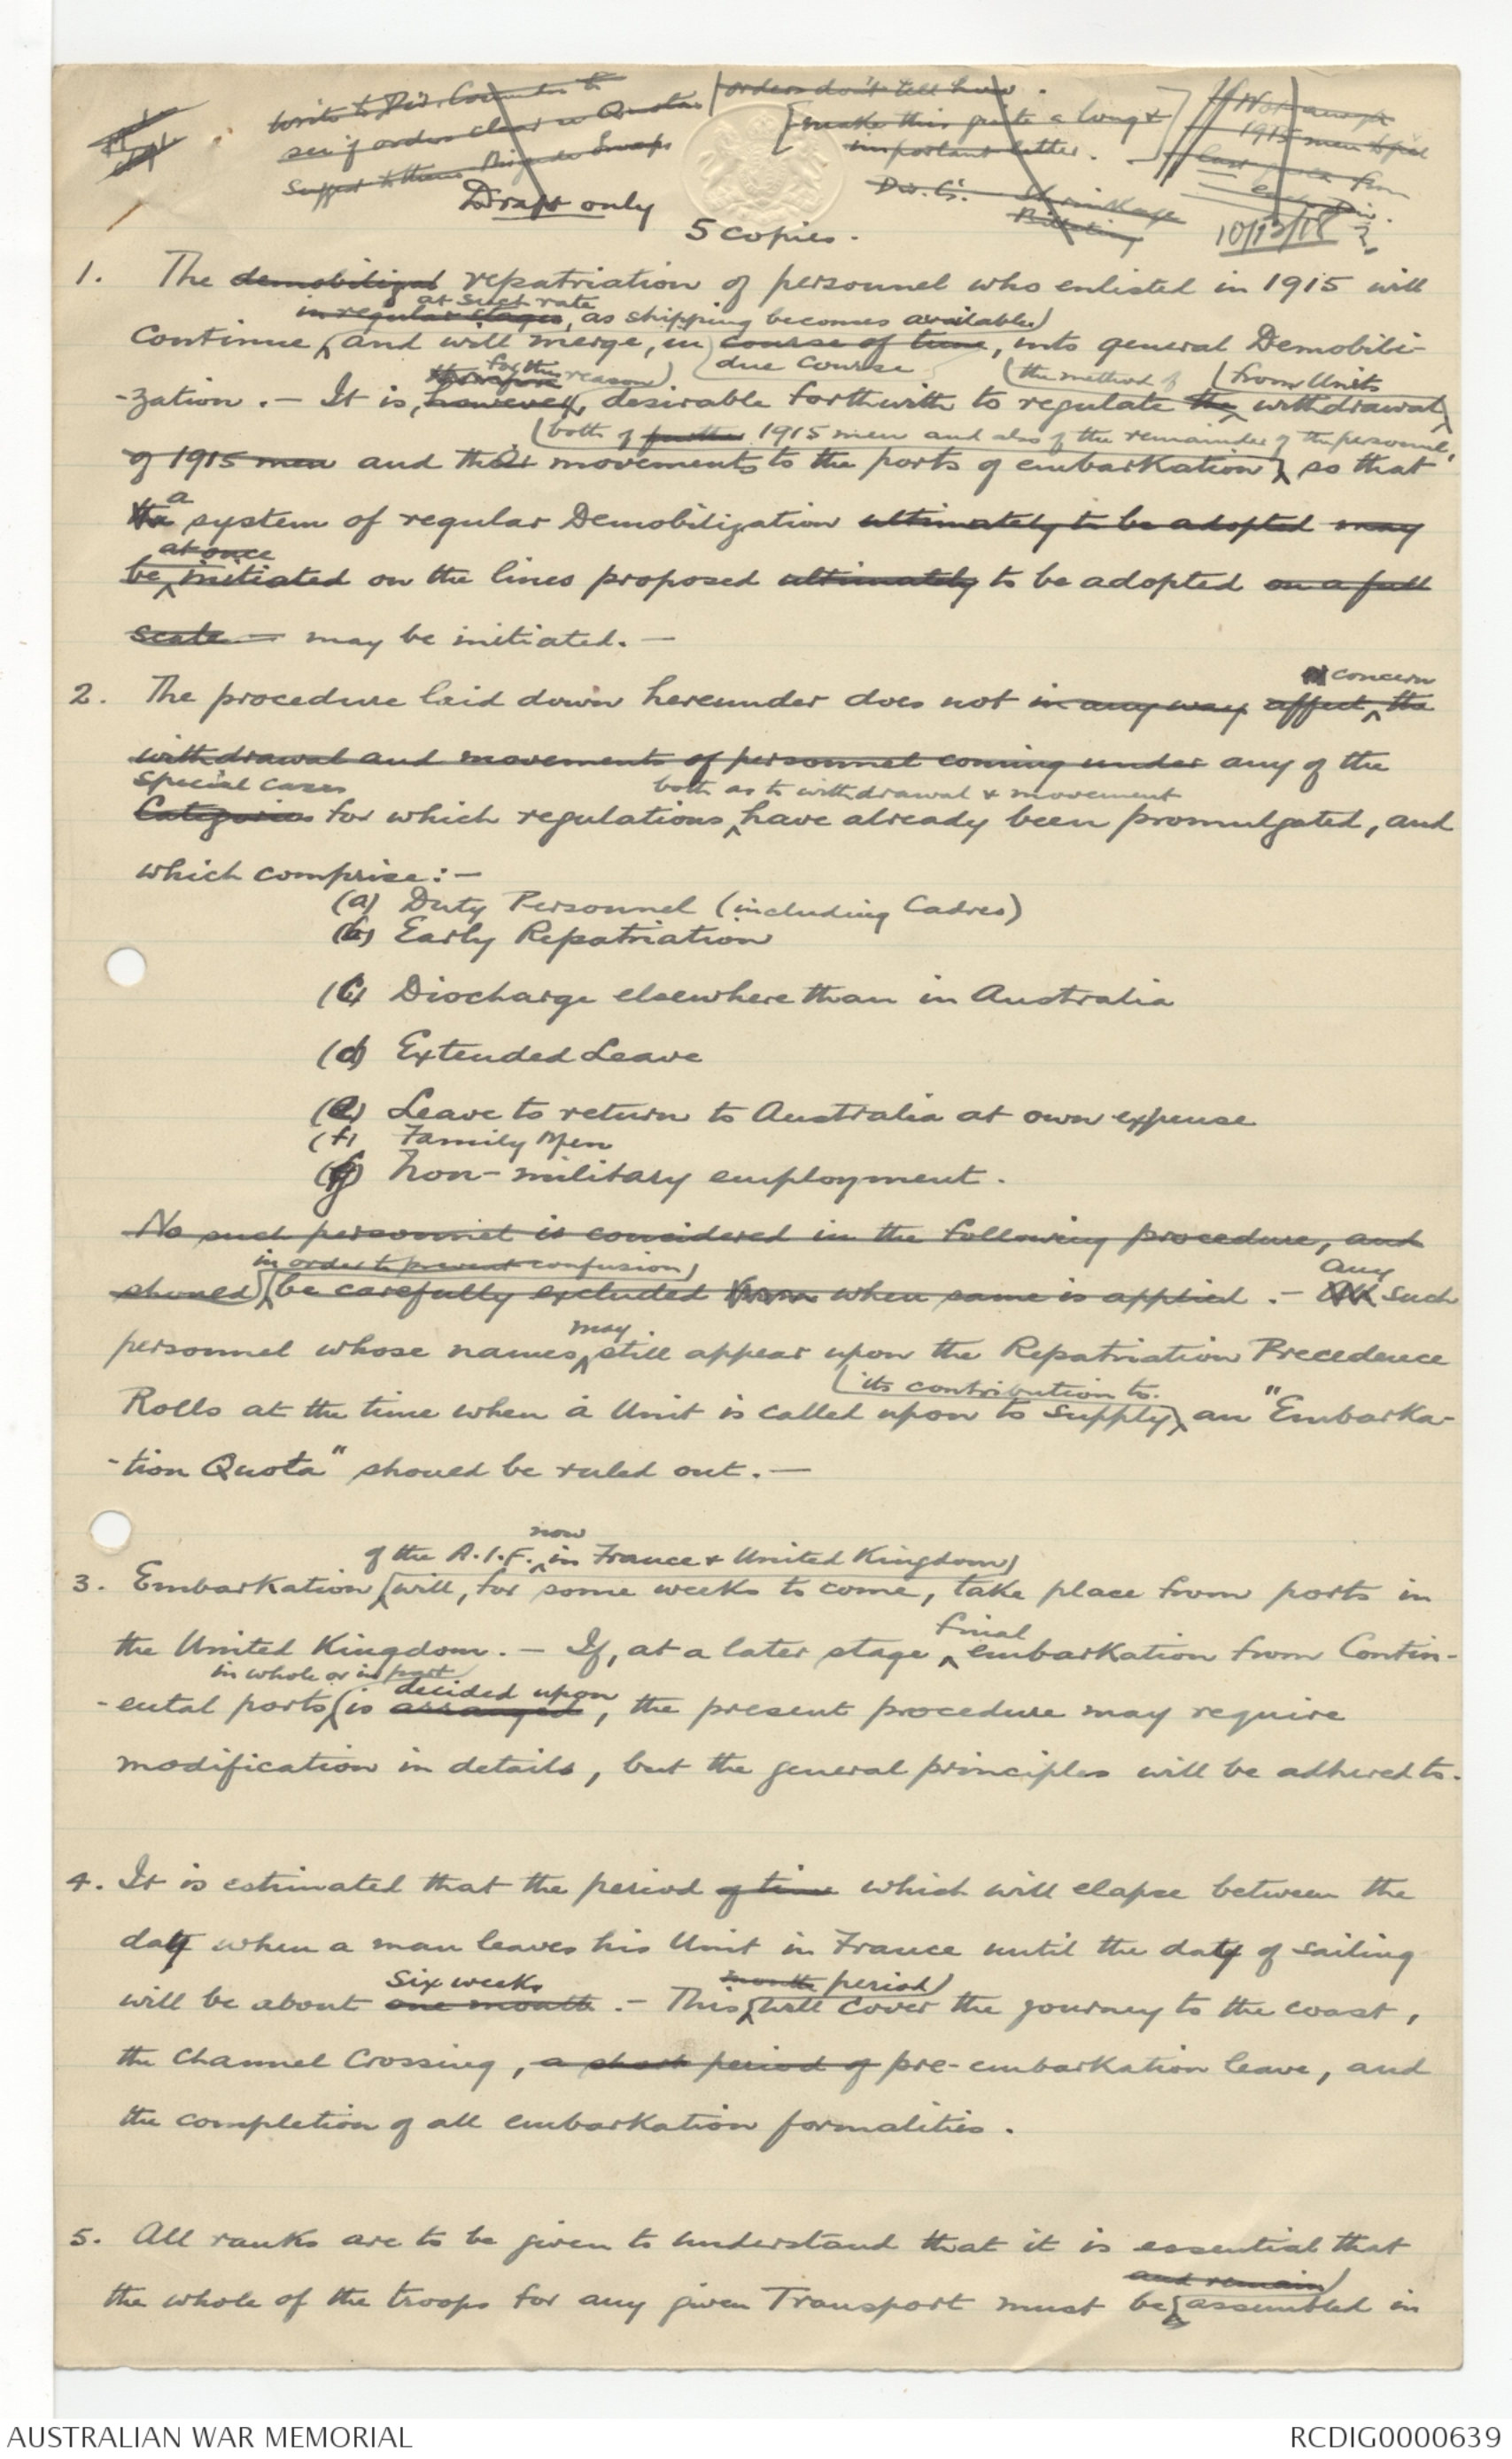 Write to Div. Commdrs to
see if orders clear re Quotas
Suggest to them Brigade Swaps
orders don't tell how.
make this quite a long &
important letter.
1915 men
Div. C's. Shrinkage
Billeting
Draft only
5 copies.
10/12/18
1. The demobilizat repatriation of personnel who enlisted in 1915 will
in regular stages, at such rate as shipping becomes available
continue, and will merge, in course of time, into general Demobili-
due course
therefore for this reason the method of from Units
-zation. - It is, however, desirable forthwith to regulate the withdrawal
both of further 1915 men and also of the remainder of the personnel,
of 1915 men and their movements to the ports of embarkation, so that
a
the system of regular Demobilization ultimately to be adopted may
at once
be initiated on the lines proposed ultimately to be adopted on a full
scale - may be initiated. -
2. The procedure laid down hereunder does not in any way affect the
concern
withdrawal and movements of personnel coming under any of the
special cases both as to withdrawal & movement
Categories for which regulations have already been promulgated, and
which comprise:-
(a) Duty Personnel (including Cadres)
(b) Early Repatriation
(c) Discharge elsewhere than in Australia
(d) Extended Leave
(e) Leave to return to Australia at own expense
(f) Family Men
(g) Non-military employment.
No such personnel is considered in the following procedure, and
in order to prevent confusion any
should be carefully excluded from when same is applied. - All such
may
personnel whose names still appear upon the Repatriation Precedence
its contribution to
Rolls at the time when a Unit is called upon to supply an "Embarka-
-tion Quota" should be ruled out. -
now
of the A.I.F. in France & United Kingdom
3. Embarkation will, for some weeks to come, take place from ports in
final
the United Kingdom. - If, at a later stage embarkation from Contin-
in whole or in part decided upon
-ental ports is arranged, the present procedure may require
modification in details, but the general principles will be adhered to.
4. It is estimated that the period of time which will elapse between the
day when a man leaves his Unit in France until the day of sailing
six weeks month period
will be about one month. - This will cover the journey to the coast,
the Channel Crossing, a short period of pre-embarkation leave, and
the completion of all embarkation formalities.
5. All ranks are to be given to understand that it is essential that
and remain
the whole of the troops for any given Transport must be assembled in
AUSTRALIAN WAR MEMORIAL
RCDIG0000639